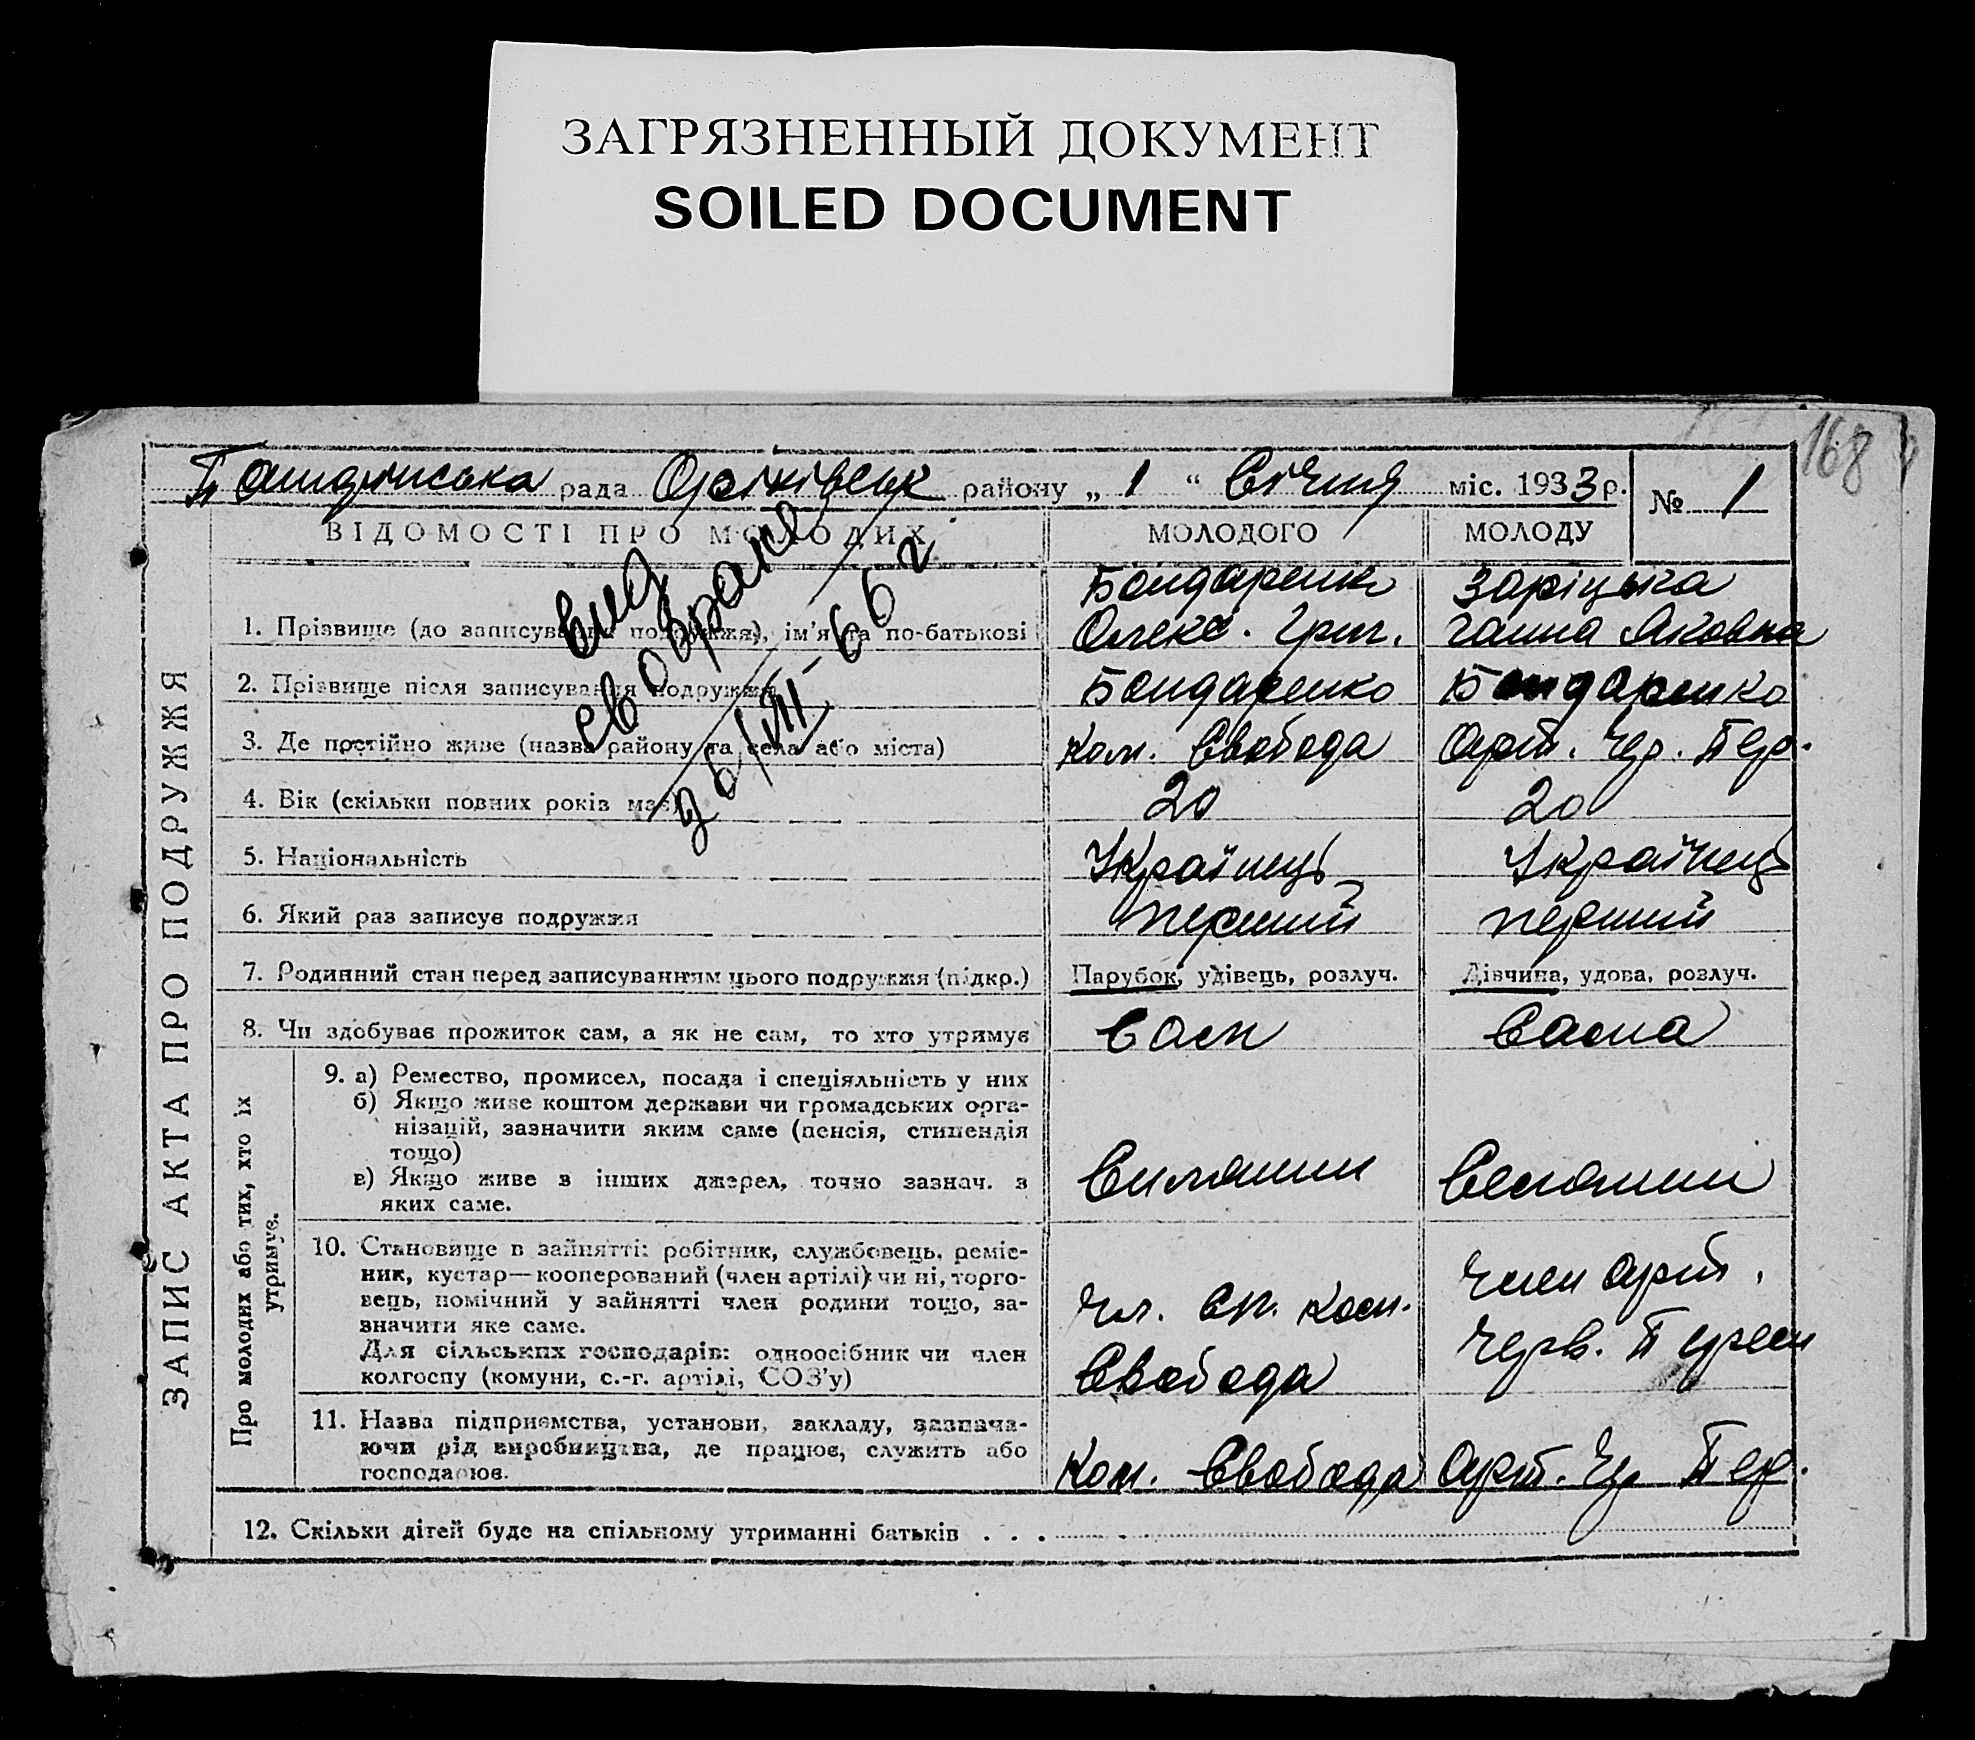 ЗАГРЯЗНЕННЫЙ ДОКУМЕНТ
SOILED DOCUMENT
168
рада Оріхівськ району „ 1 “ Січня міс. 1933 р.
№ 1
ВІДОМОСТІ ПРО МОЛОДИХ
МОЛОДОГО
МОЛОДУ
1. Прізвище (до записування подружжя), ім'я та по-батькові
Бондаренко
Олекс. Григ.
Заріцька
Ганна Яковна
2. Прізвище після записування подружжя
Бондаренко
Бондаренко
3. Де постійно живе (назва району та села або міста)
Ком. Свобода
Арт. Чер. Пер.
4. Вік (скільки повних років має)
20
20
5. Національність
Українець
Українець
6. Який раз записує подружжя
перший
перший
7. Родинний стан перед записуванням цього подружжя (підкр.)
Парубок, удівець, розлуч.
Дівчина, удова, розлуч.
8. Чи здобуває прожиток сам, а як не сам, то хто утримує
Сам
Сама
9. а) Ремество, промисел, посада і спеціяльність у них
б) Якщо живе коштом держави чи громадських орга-
нізацій, зазначити яким саме (пенсія, стипендія
тощо)
в) Якщо живе з інших джерел, точно зазнач. з
яких саме.
10. Становище в зайнятті: робітник, службовець, реміс-
ник, кустар—кооперований (член артілі) чи ні, торго-
вець, помічний у зайнятті член родини тощо, за-
значити яке саме.
Для сільських господарів: одноосібник чи член
колгоспу (комуни, с.-г. артілі, СОЗ'у)
Чл. Ком.
Свобода
Член арт.
Черв. Перем
11. Назва підприємства, установи, закладу, зазнача-
ючи рід виробництва, де працює, служить або
господарює.
Ком. Свобода
Арт. Чер Пер.
12. Скільки дітей буде на спільному утриманні батьків . . .
ЗАПИС АКТА ПРО ПОДРУЖЖЯ
Про молодих або тих, хто їх
утримує.
26/VII-66 г.